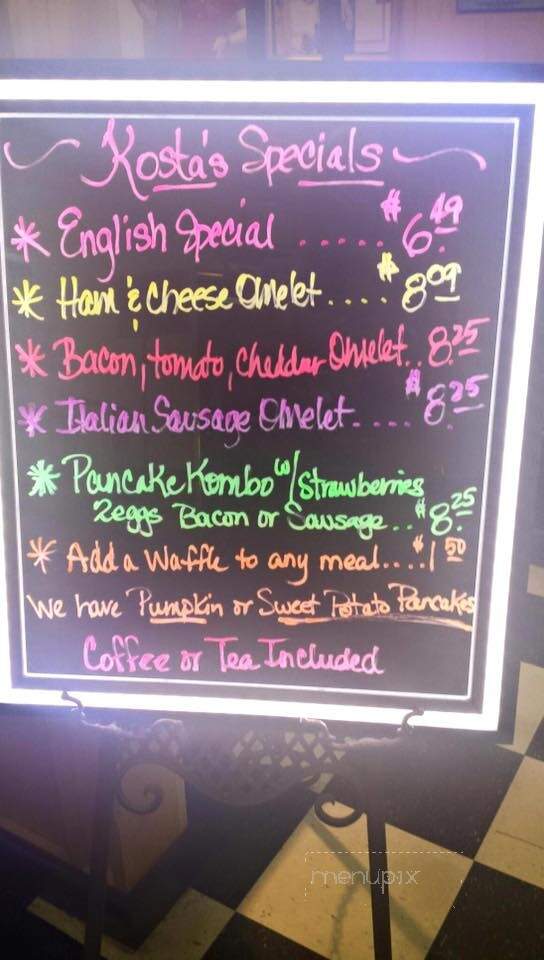 Kosta's Specials
* English Special ..... $6.49
* Ham & Cheese Omelet.... $8.09
* Bacon, tomato, cheddar Omelet.. 8.25
* Italian Sausage Omelet.... $8.25
* Pancake Kombo w/ Strawberries
2eggs Bacon or Sausage.. $8.25
* Add a Waffle to any meal.... $1.50
We have Pumpkin or Sweet Potato Pancakes
Coffee or Tea Included
menupix